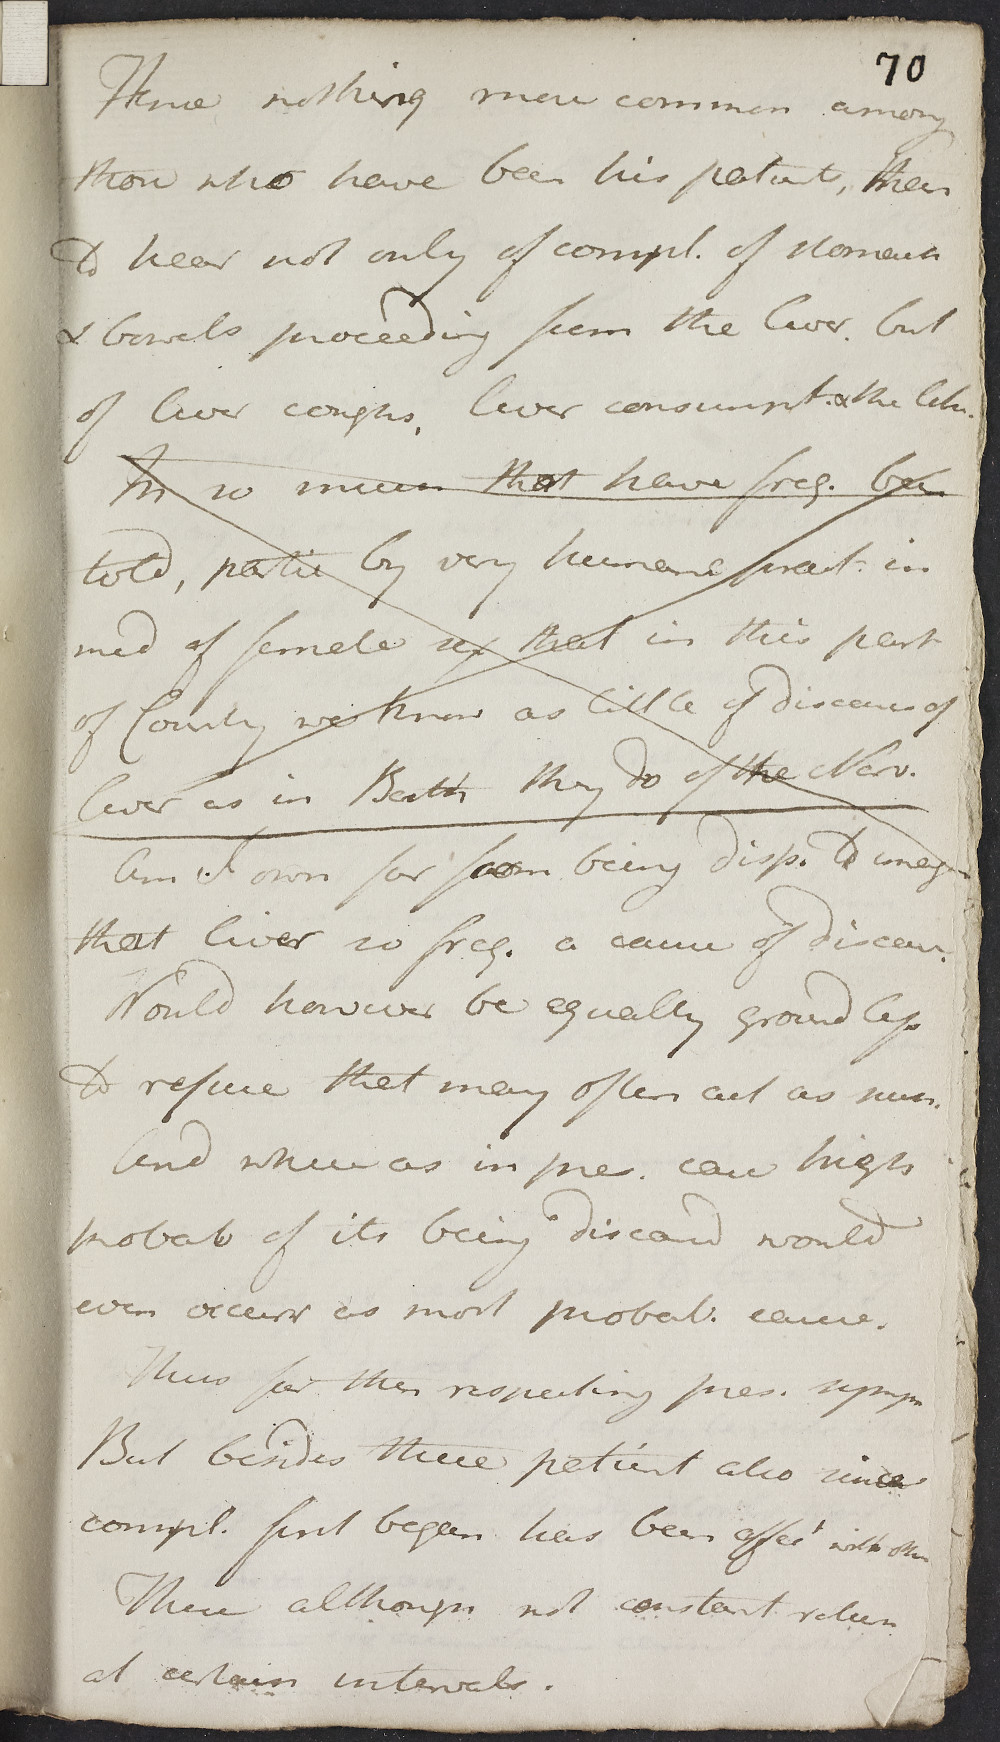 70
Hence nothing more common among
those who have been his patient, than
to hear not only of compl. of stomach
& bowels proceeding from the liver. but
of liver coughs, liver consumpt. & the like.
In so much that have freq. been
told, partic by very humane pract. in
med of female sex that in this part
of County we know as little of diseases of
liver as in Bath they do of the Nerv.
Am I own far from being disp. to imagin
that liver so freq. a cause of disease.
Would however be equally groundless
to refuse that may often act as such.
And where as in pres. case high
probab of its being diseased would
even occurr as most probab. cause.
Thus far then respecting pres. symp
But besides these patient also since
compl. first began has been affec'd with other
These although not constant return
at certain intervals.